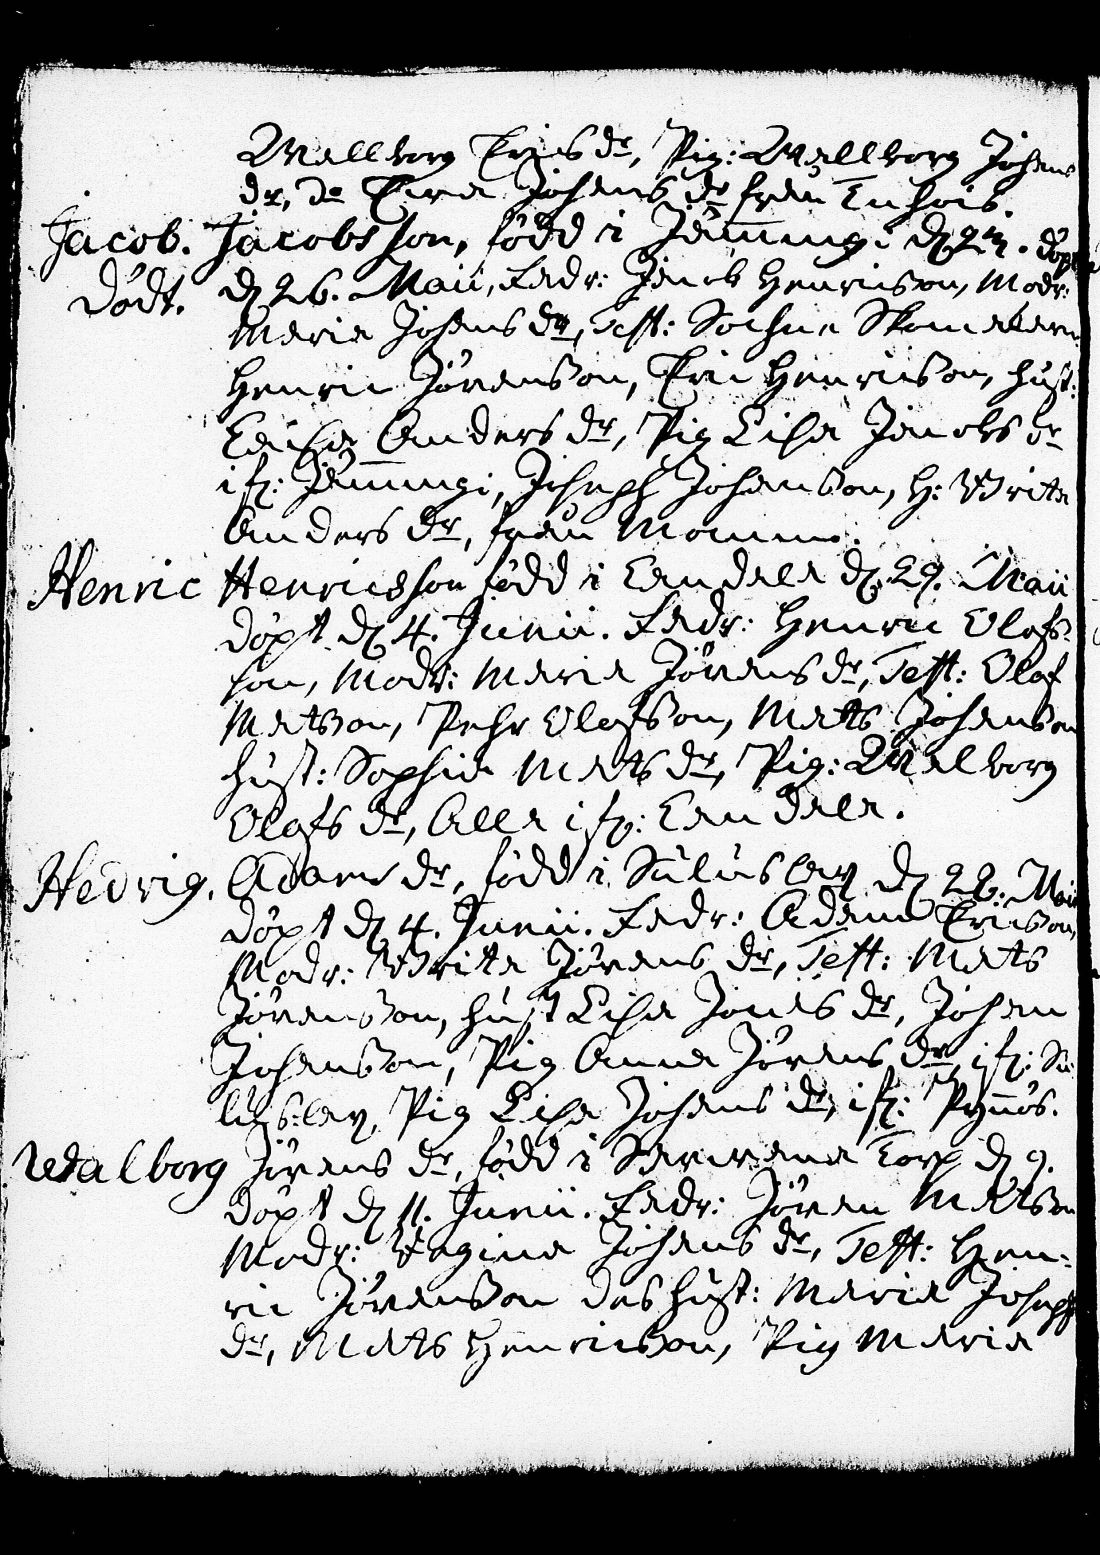 Wallborg Erics dr, Pig: Wallborg Johans
dr, do Caisa Johans dr från Tuhois.
Jacob. Jacobsson, född i Jämmngi d. 24. döpt
Dödt. d. 26. Maii, Fadr: Jacob Henricsson, Modr:
Maria Johans dr, Test: Sochne Skomakaren
Henric Jöransson, Eric Henricsson, hust:
Anders dr, Pig Lisa Jacobs dr
i fz: Jämmngi, Joseph Johansson, H: Brita
Anders dr, från
Henric Henricsson född i Landala d. 29. Maii
döpt d. 4. Junii. Fadr: Henric Olofs-
son, Modr: Maria Jörans dr, Test: Olof
Matsson, Pehr Olofsson, Mats Johansson
hust: Sophia Mats dr, Pig: Walborg
Olofs dr, Alla i fz: Landala.
Hedvig. Adams dr, född i Sulusley d. 28. Maii
döpt d. 4. Junii. Fadr: Adam Ericsson,
Modr: Brita Jörans dr, Test: Mats
Jöransson, hust Lisa Jonas dr, Johan
Johansson, Pig Anna Jörans dr, i fz: Su-
lusley, Pig Lisa Johans dr, i fz: Pynnös.
Walborg Jörans dr, född i Torp d. 9.
döpt d. 11. Junii. Fadr: Jöran Matsson
Modr: Regina Johans dr, Test: Hen-
ric Jöransson das hust: Maria Josephs
dr, Mats Henricsson, Pig Maria